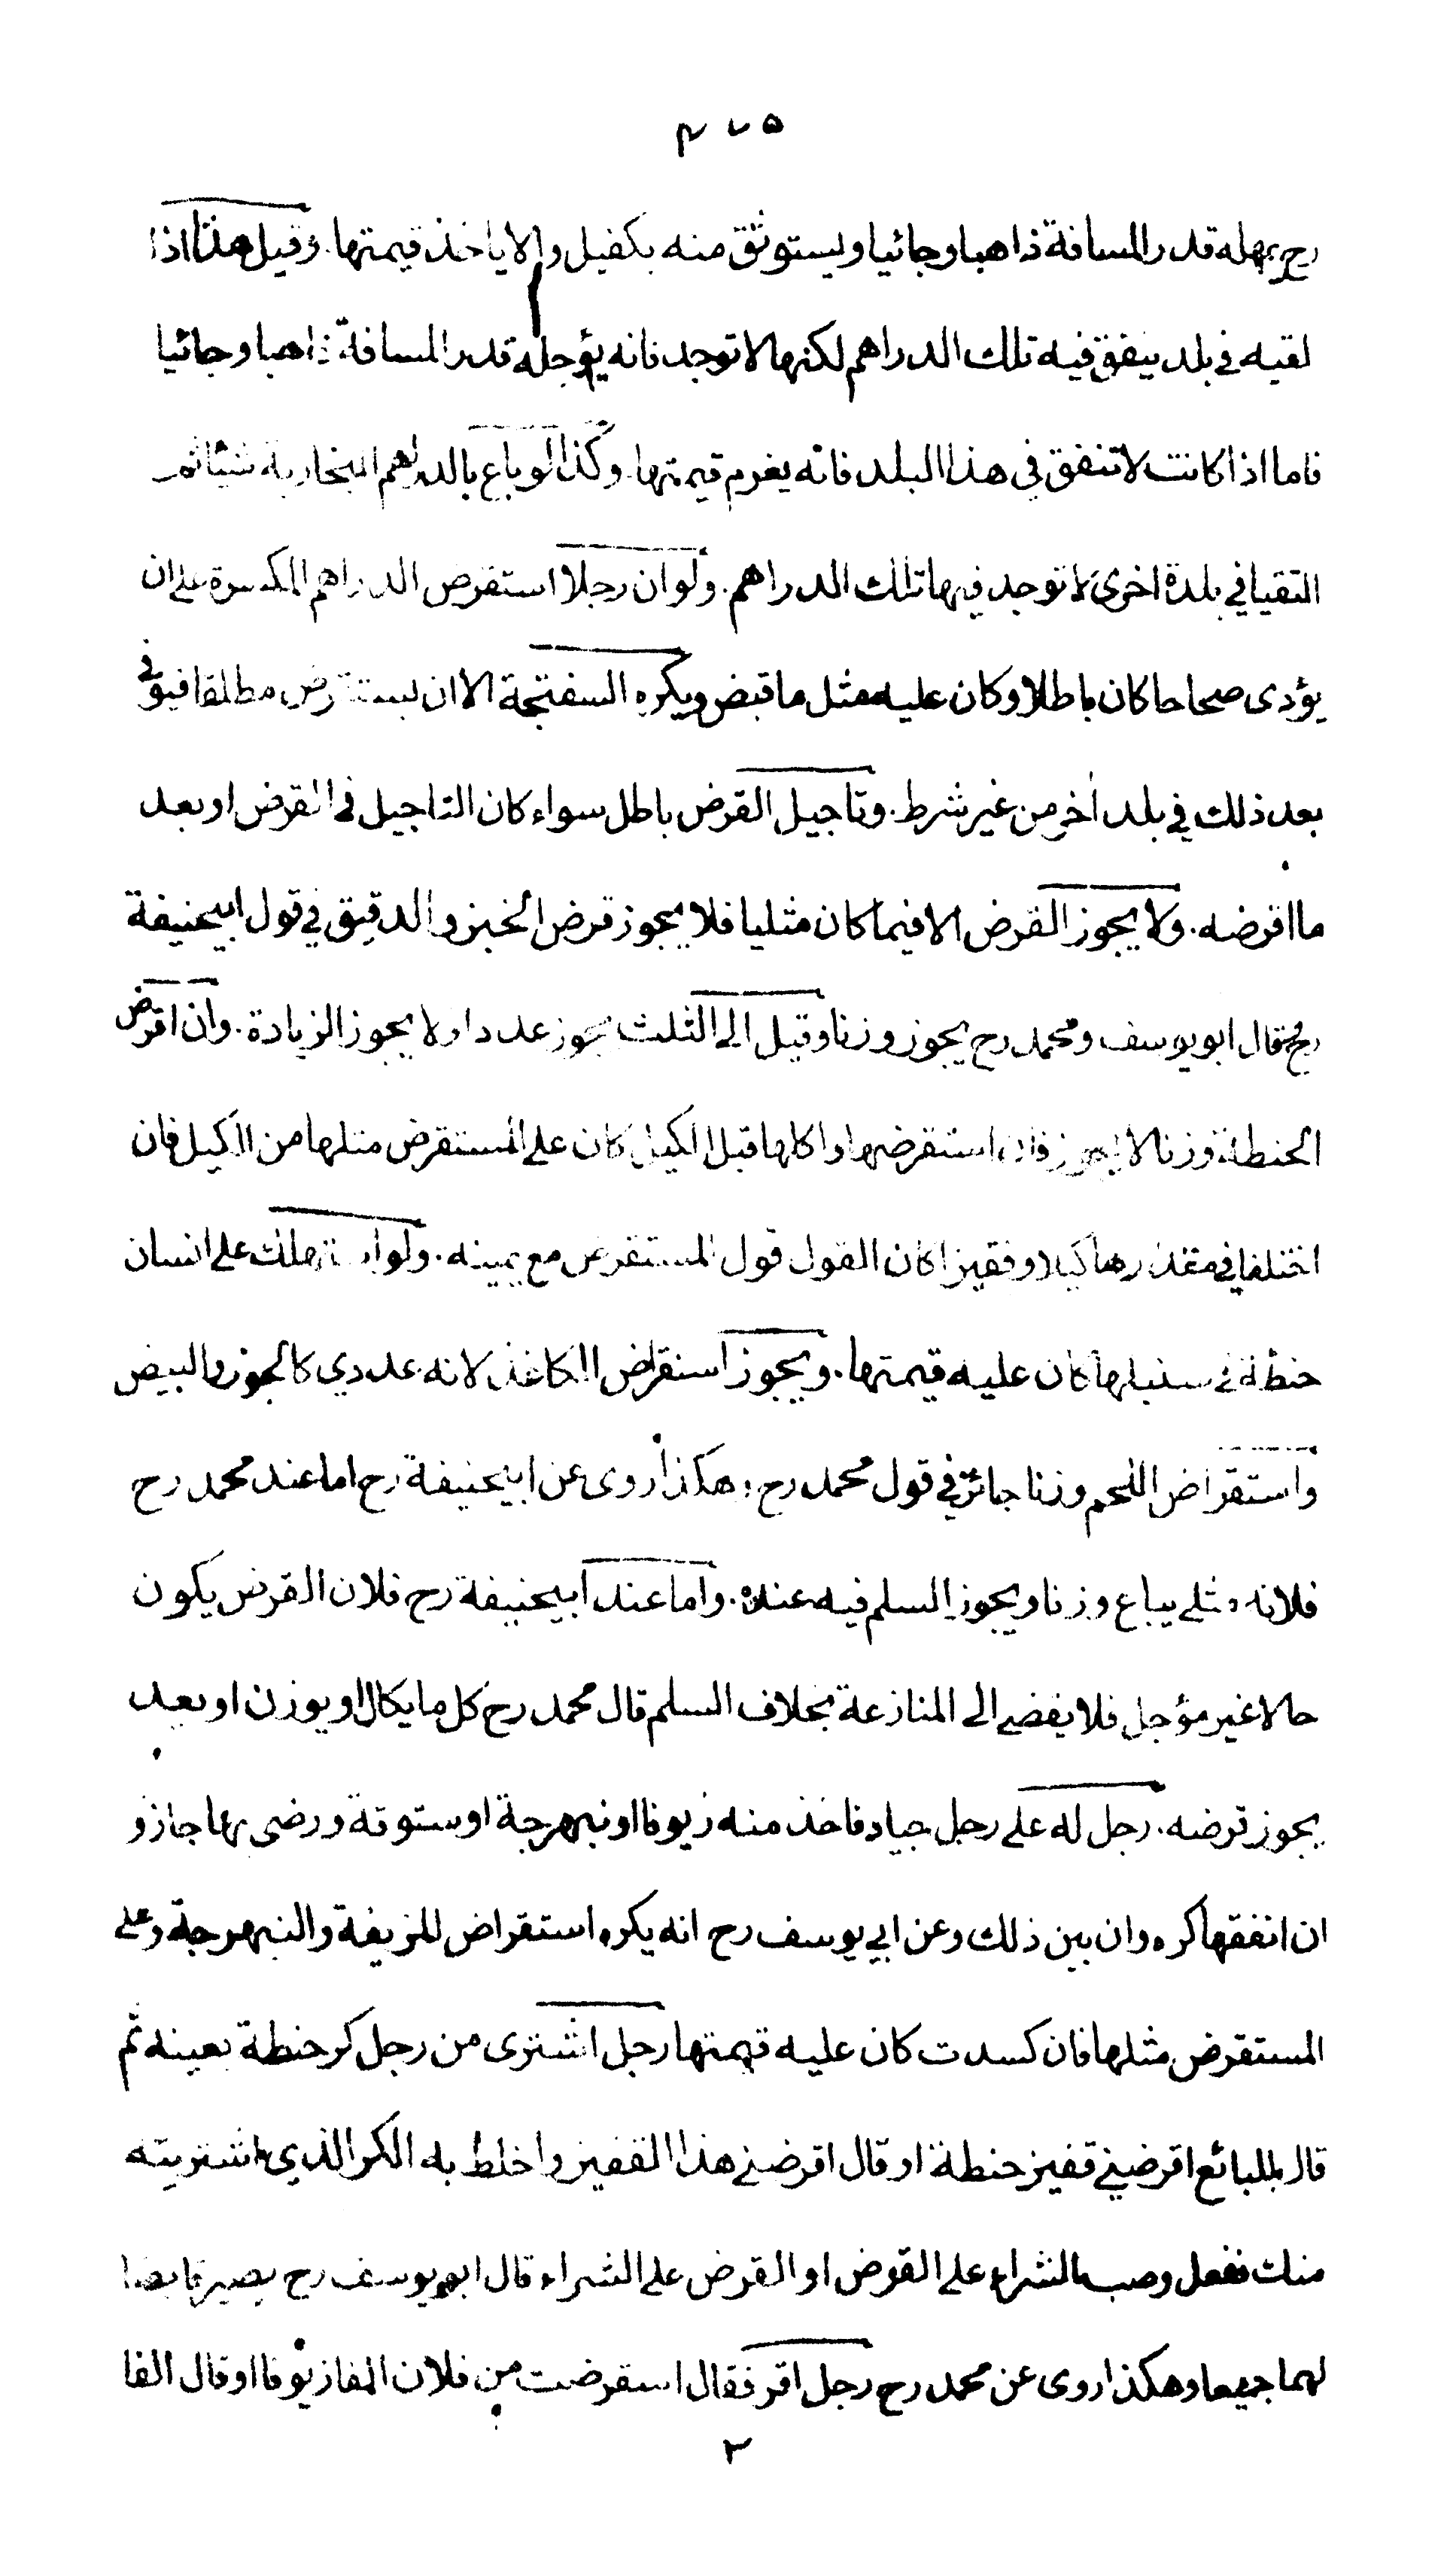 ٤٧٥
رح يمهله قدر المسافة ذاهبا وجائيا ويستوثق منه بكفيل والا ياخذ قيمتها. وقيل هذا اذا
لقيه في بلد ينفق فيه تلك الدراهم لكنها لا توجد فانه يؤجله قدر المسافة ذاهبا وجائيا
فاما اذا كانت لا تنفق في هذا البلد فانه يغرم قيمتها. وكذا لو باع بالدراهم البخارية شيئا ثم
التقيا في بلدة اخرى لا توجد فيها تلك الدراهم. ولو ان رجلا استقرض الدراهم المكسرة على ان
يؤدى صحاحا كان باطلا وكان عليه مثل ما قبض ويكره السفتجة الا ان يستقرض مطلقا فيوفى
بعد ذلك في بلد اخر من غير شرط. وتاجيل القرض باطل سواء كان التاجيل في القرض او بعد
ما اقرضه. ولا يجوز القرض الا فيما كان مثليا فلا يجوز قرض الخبز والدقيق في قول ابيحنيفة
رح وقال ابو يوسف ومحمد رح يجوز وزنا وقيل الى الثلث يجوز عددا ولا يجوز الزيادة. وان اقرض
الحنطة وزنا لا يجوز فان استقرضها واكلها قبل الكيل كان على المستقرض مثلها من الكيل فان
اختلفا في مقدارها كيلا وقفيزا كان القول قول المستقرض مع يمينه. ولو استهلك على انسان
حنطة في سنبلها كان عليه قيمتها. ويجوز استقراض الكاغذ لانه عددي كالجوز والبيض
واستقراض اللحم وزنا جائز في قول محمد رح وهكذا روى عن ابيحنيفة رح اما عند محمد رح
فلانه مثلي يباع وزنا ويجوز السلم فيه عنده. واما عند ابيحنيفة رح فلان القرض يكون
حالا غير مؤجل فلا يفضي الى المنازعة بخلاف السلم قال محمد رح كل ما يكال او يوزن او يعد
يجوز قرضه. رجل له على رجل جياد فاخذ منه زيوفا او نبهرجة او ستوقة ورضى بها جاز و
ان انفقها كره وان بين ذلك وعن ابي يوسف رح انه يكره استقراض للزيفة والنبهرجة وعلى
المستقرض مثلها فان كسدت كان عليه قيمتها رجل اشترى من رجل كر حنطة بعينه ثم
قال للبائع اقرضني قفيز حنطة او قال اقرضني هذا القفيز واخلط به الكر الذي اشتريته
منك ففعل وصب الشراء على القرض او القرض على الشراء قال ابو يوسف رح يصير قابضا
لهما جميعا وهكذا روى عن محمد رح رجل اقر فقال استقرضت من فلان الفا زيوفا او قال الفا
٣